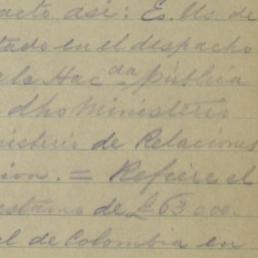 acto así: Es. Us. de
tado en el despacho
e la Hacda pública
dho Ministerio
nisterio de Relaciones
ion. = Refiere el
estamo de £ 63.000.
el de Colombia en